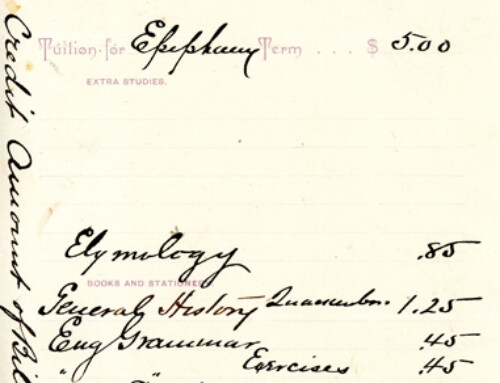 Tuition for Epiphany Term . . . . $ 5.00
EXTRA STUDIES.
Etymology .85
BOOKS AND STATIONERY.
General History 1.25
Eng Grammar .45
" Exercises .45
Credit Amount of Bill